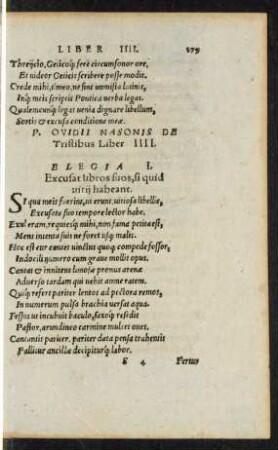 LIBER IIII. 279
Threycio, Scithicoq́ fere circumsonor ore,
Et videor Geticis scribere posse modis.
Crede mihi, timeo, ne sint immista latinis,
Inq́ meis scriptis Pontica verba legas.
Qualemcunq́ legas venia dignare libellum,
Sortis & excusa conditione meæ.
P. OVIDII NASONIS DE
Tristibus Liber IIII.
ELEGIA I.
Excusat libros suos, si quid
vitij habeant.
SI qua meis fuerint, ut erunt, vitiosa libellis,
Excusata suo tempore lector habe.
Exul eram, requiesq́; mihi, non fama petita est,
Mens intenta suis ne foret usq́; malis.
Hoc est cur cantet vinctus quoq́; compede fossor,
Indocili numero cum graue mollit opus.
Cantat & innitens limosæ pronus arenæ
Aduerso tardam qui vehit amne ratem.
Quiq́; refert pariter lentos ad pectora remos,
In numerum pulsa brachia versat aqua.
Fessus ut incubuit baculo, saxoq́; resedit
Pastor, arundineo carmine mulcet oues.
Cantantis pariter, pariter data pensa trahentis
Fallitur ancillæ decipiturq́; labor.
S 4 Fertur